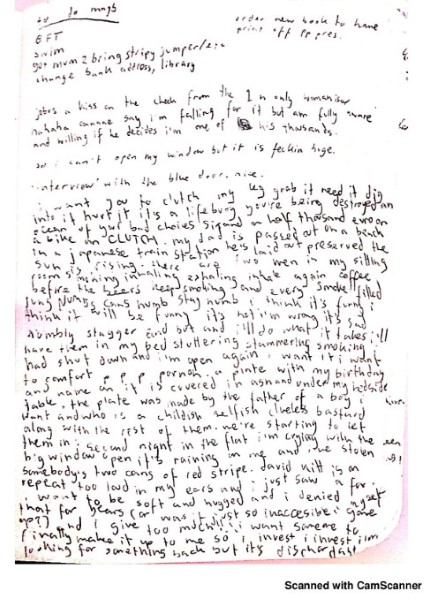 to do mngs
order new book to home
print off pp pres.
EFT
swim
get mum 2 bring stripy jumper
change bank address, library
jokes a kiss on the cheek from the 1 n only womaniser
hahaha cannae say i'm falling for it but am fully aware
and willing if he decides i'm one of his thousands.
so i can't open my window but it is feckin huge.
'interview' with the blue door. nice.
i want you to clutch my leg grab it need it dig
into it hurt it it's a lifebuoy you're being destroyed an
ocean of your bad choices half thousand euro on
a bike an CLUTCH. my dad is passed out on a bench
in a japanese train station he's laid out preserved the
sun is rising. there are two men in my sitting
room smoking inhaling exhaling inhale again coffee
before the beers keep smoking and every smoke filled
lung NUMBS numb stay numb i think it's funny i
think it will be funny it's not i'm wrong it's sad
numbly stagger and but and i'll do what it takes i'll
have them in my bed stuttering stammering smoking
had shut down and i'm open again i want it i want
to comfort p p p a plate with my birthday
and name on it is covered in ash and under my bedside
table. the plate was made by the father of a boy i
want and who is a childish selfish clueless bastard
along with the rest of them. we're starting to let
them in. second night in the flat i'm crying with the
big window open it's raining on me and i've stolen
somebody's two cans of red stripe. david kitt is on
repeat too loud in my ears and i just saw a fox
i want to be soft and hugged and i denied myself
that for years (or was it just so inaccesible i gave
up?) and i give too much!!! i want someone to
finally make it up to me so i invest i invest i'm
looking for something back but it's
Scanned with CamScanner